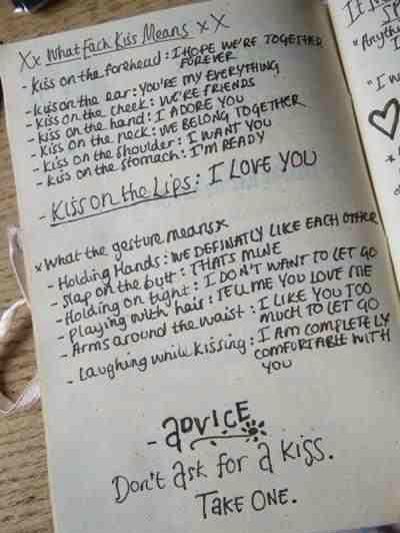 Xx What Each Kiss Means x X
- Kiss on the forehead : I HOPE WE'RE TOGETHER
FOREVER
- Kiss on the ear : YOU'RE MY EVERYTHING
- Kiss on the cheek : WE'RE FRIENDS
- Kiss on the hand : I ADORE YOU
- Kiss on the neck : WE BELONG TOGETHER
- Kiss on the shoulder : I WANT YOU
- Kiss on the stomach : I'M READY
- Kiss on the Lips : I LOVE YOU
x What the gesture means x
- Holding Hands : WE DEFINATLY LIKE EACH OTHER
- Slap on the butt : THATS MINE
- Holding on tight : I DON'T WANT TO LET GO
- Playing with hair : TELL ME YOU LOVE ME
- Arms around the waist : I LIKE YOU TOO
MUCH TO LET GO
- Laughing while kissing : I AM COMPLETELY
COMFORTABLE WITH
YOU
- aDVICE
Don't ask for a kiss.
TAKE ONE.
It is
"Anythi
"I w